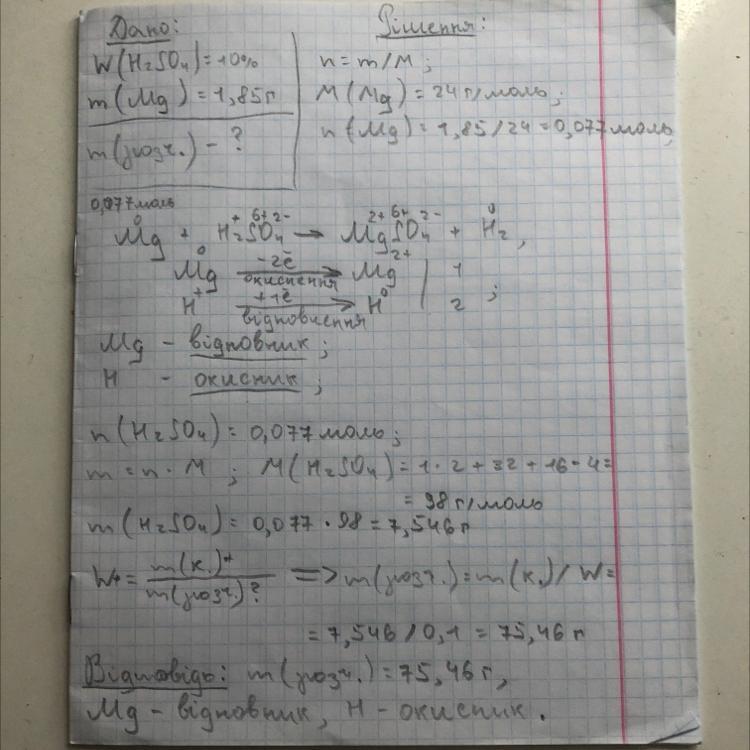 Дано:
W(H₂SO₄)=10%
m(Mg)=1,85г
m(розч.) - ?
Рішення:
n=m/M;
M(Mg)=24г/моль;
n(Mg)=1,85/24=0,077моль,
0,077моль
Mg⁰ + H₂⁺S⁶⁺O₄²⁻ → Mg²⁺S⁶⁺O₄²⁻ + H₂⁰,
Mg⁰ -2ē окиснення → Mg²⁺ | 1
H⁺ +1ē відновлення → H⁰ | 2 ;
Mg - відновник;
H - окисник;
n(H₂SO₄)=0,077моль;
m=n·M; M(H₂SO₄)=1·2+32+16·4=
= 98г/моль
m(H₂SO₄)=0,077·98=7,546г
W⁺= m(к.)⁺ / m(розч.)? => m(розч.)=m(к.)/W=
= 7,546/0,1 = 75,46г
Відповідь: m(розч.)=75,46г,
Mg - відновник, H - окисник.